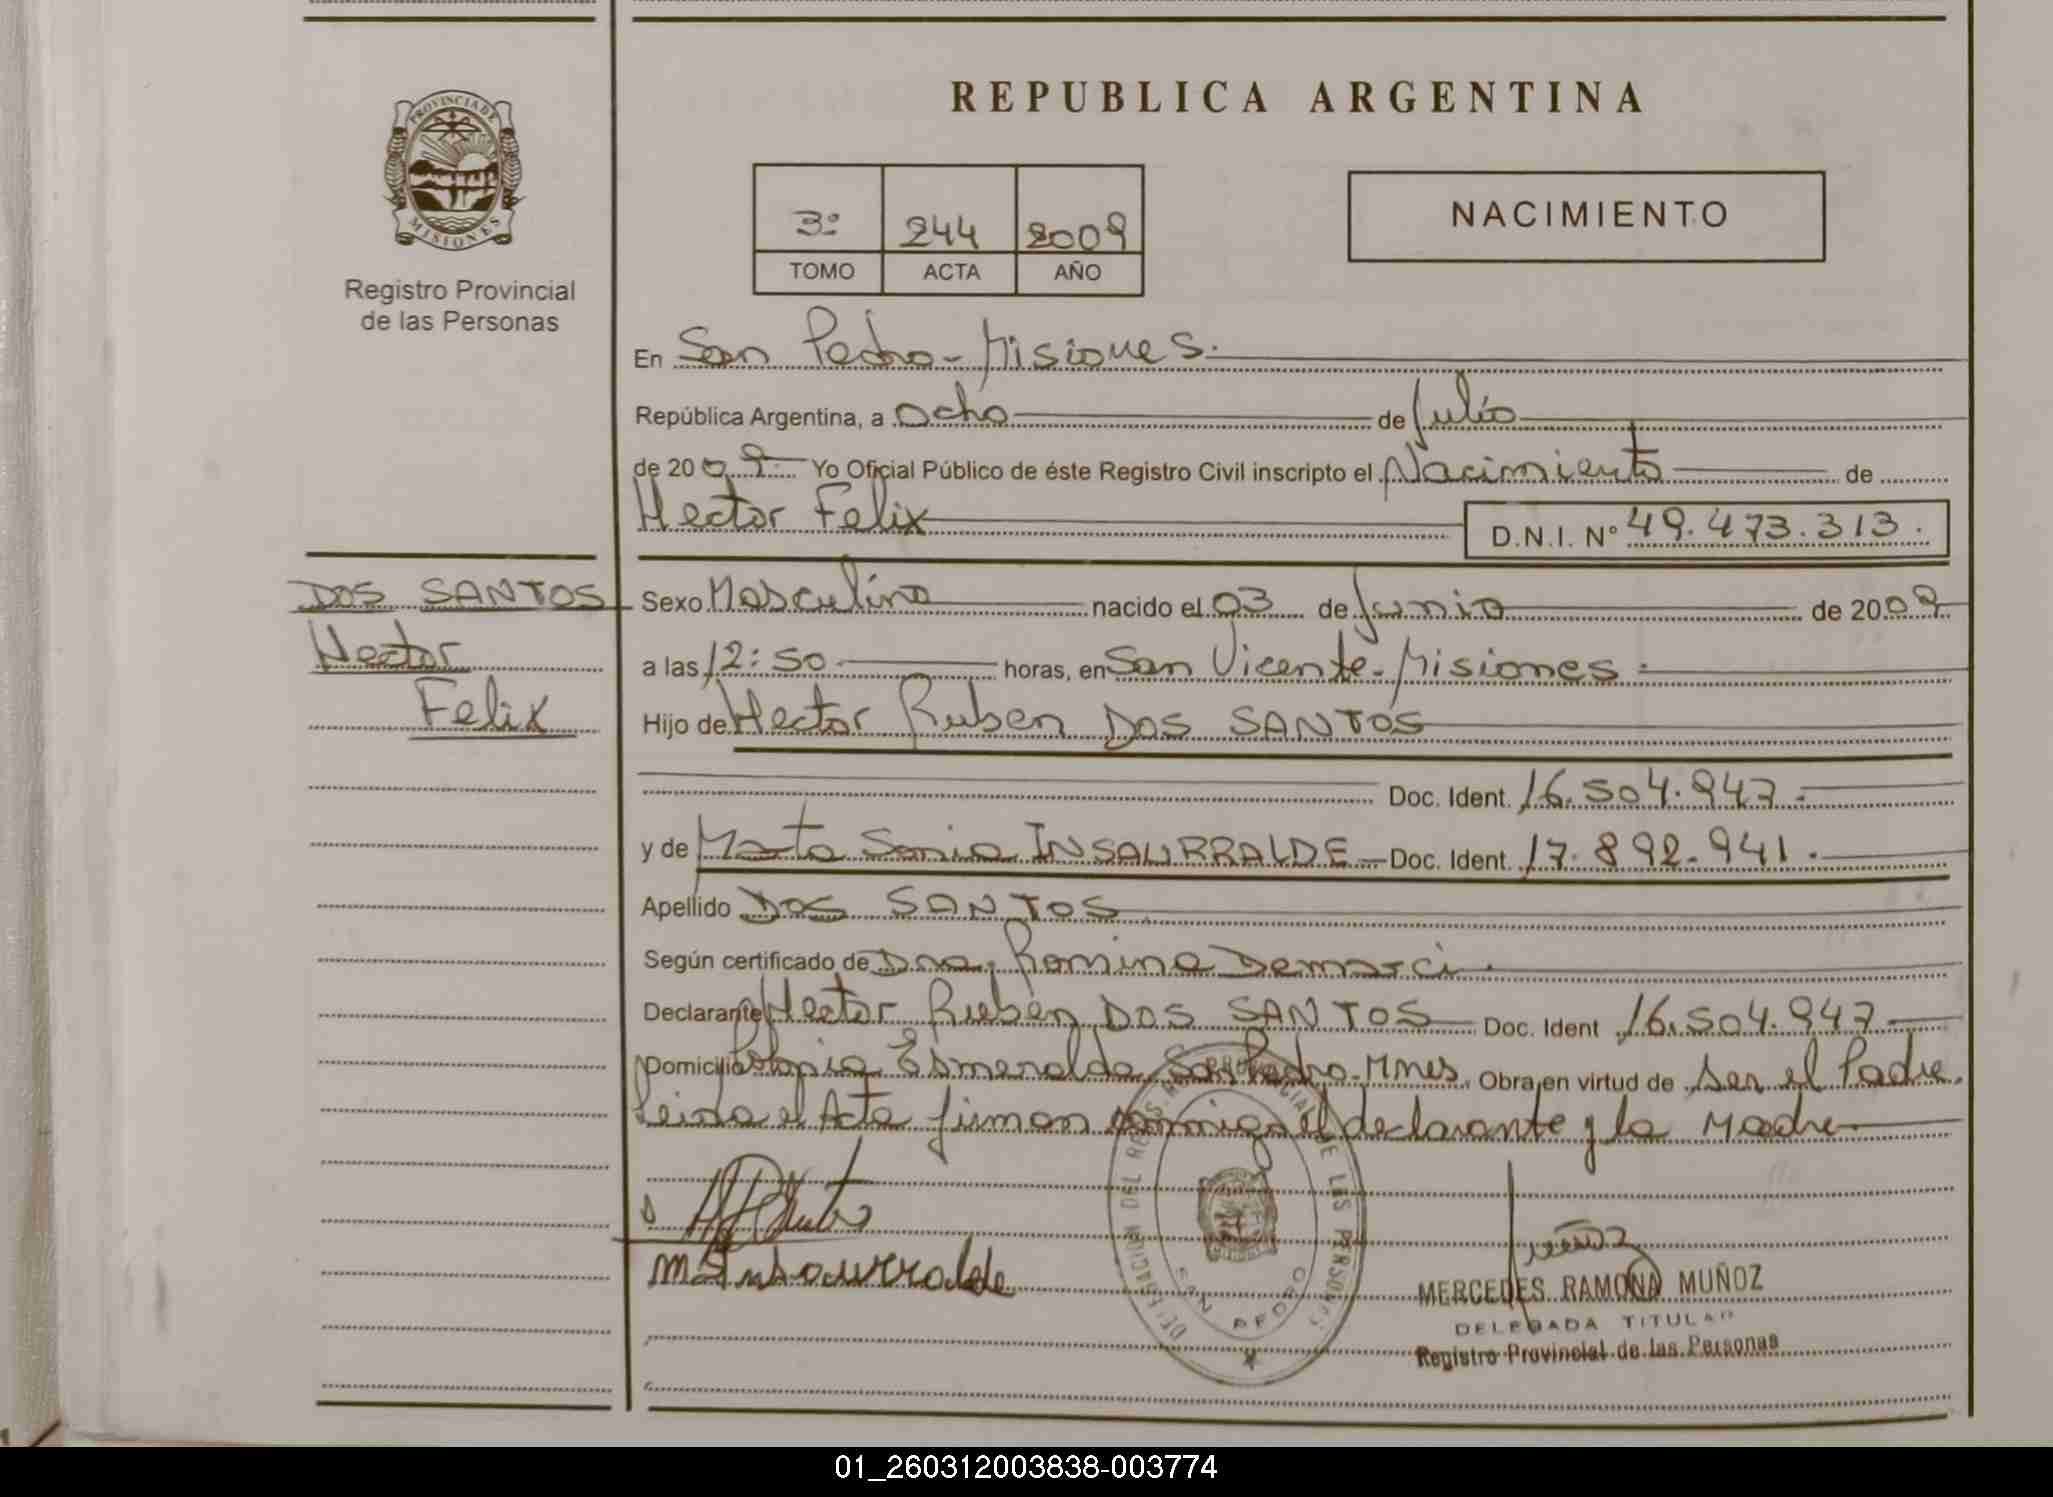 REPUBLICA ARGENTINA
PROVINCIA DE
MISIONES
Registro Provincial
de las Personas
3º 244 2009
TOMO ACTA AÑO
NACIMIENTO
En San Pedro - Misiones.
República Argentina, a Ocho de Julio
de 2009 Yo Oficial Público de éste Registro Civil inscripto el Nacimiento de
Hector Felix D.N.I. Nº 49.473.313.
DOS SANTOS
Hector
Felix
Sexo Masculino nacido el 03 de Junio de 2009
a las 12:50 horas, en San Vicente - Misiones.
Hijo de Hector Ruben DOS SANTOS
Doc. Ident. 16.504.947.
y de Marta Sonia INSAURRALDE Doc. Ident. 17.892.941.
Apellido DOS SANTOS
Según certificado de Dra. Romina Demarci.
Declarante Hector Ruben DOS SANTOS Doc. Ident 16.504.947
Domicilio Esmeralda San Pedro - Mnes. Obra en virtud de Ser el Padre.
Leida el Acta firman conmigo el declarante y la Madre
M S Insaurralde
DELEGACION DEL REGISTRO PROVINCIAL DE LAS PERSONAS
SAN PEDRO
MERCEDES RAMONA MUÑOZ
DELEGADA TITULAR
Registro Provincial de las Personas
01_260312003838-003774